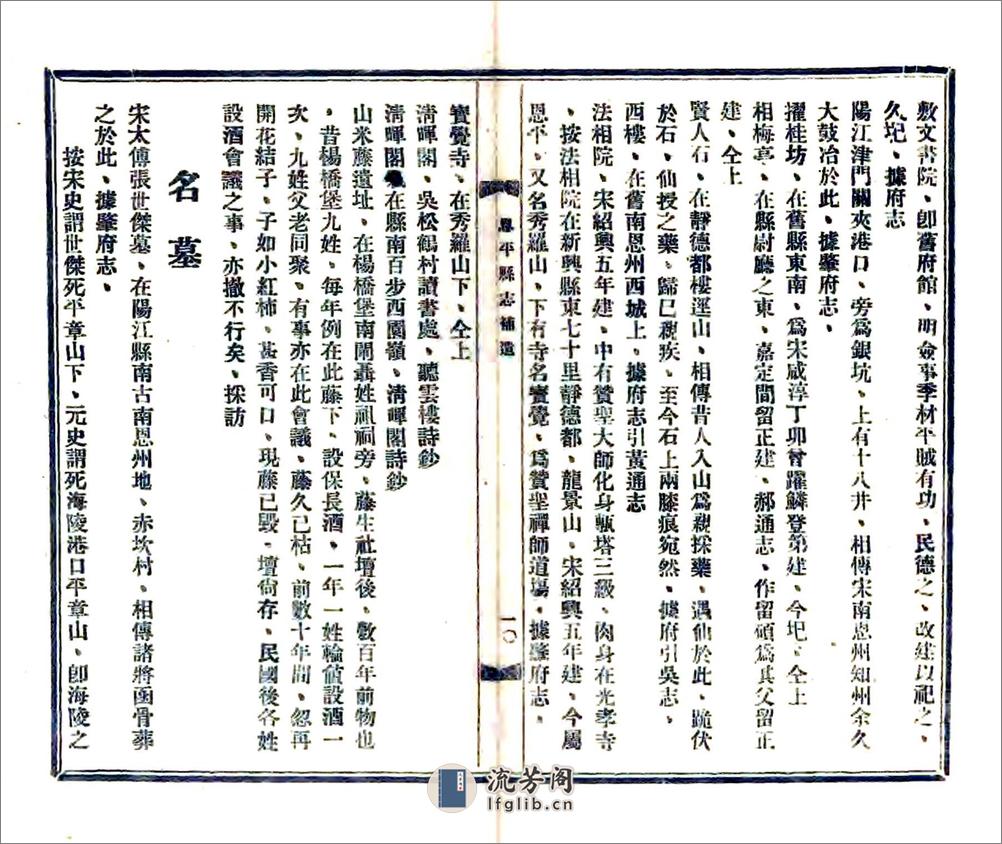 敷文書院、卽舊府館、明僉事李材平賊有功、民德之、改建以祀之、
久圮、據府志
陽江津門關夾港口、旁爲銀坑、上有十八井、相傳宋南恩州知州余久
大鼓冶於此、據肇府志、
擢桂坊、在舊縣東南、爲宋咸淳丁卯曾躍鱗登第建、今圮、仝上
相梅亭、在縣尉廳之東、嘉定間留正建、郝通志、作留碩爲其父留正
建、仝上
賢人石、在靜德都樓逕山、相傳昔人入山爲親採藥、遇仙於此、跪伏
於石、仙授之藥、歸已親疾、至今石上兩膝痕宛然、據府引吳志、
西樓、在舊南恩州西城上、據府志引黃通志
法相院、宋紹興五年建、中有贊聖大師化身甎塔三級、肉身在光孝寺
、按法相院在新興縣東七十里靜德都、龍景山、宋紹興五年建、今屬
恩平、又名秀羅山、下有寺名寳覺、爲贊聖禪師道塲、據肇府志、
恩平縣志補遺
一〇
寳覺寺、在秀羅山下、仝上
淸暉閣、吳松鶴村讀書處、聽雲樓詩鈔
淸暉閣、在縣南百步西園嶺、淸暉閣詩鈔
山米藤遺址、在楊橋堡南閘聶姓祖祠旁、藤生社壇後、數百年前物也
、昔楊橋堡九姓、每年例在此藤下、設保長酒、一年一姓輪値設酒一
次、九姓父老同聚、有事亦在此會議、藤久已枯、前數十年間、忽再
開花結子、子如小紅柿、甚香可口、現藤已毀、壇尙存、民國後各姓
設酒會議之事、亦撤不行矣、採訪
名墓
宋太傅張世傑墓、在陽江縣南古南恩州地、赤坎村、相傳諸將函骨葬
之於此、據肇府志、
按宋史謂世傑死平章山下、元史謂死海陵港口平章山、卽海陵之
流芳阁
lfglib.cn